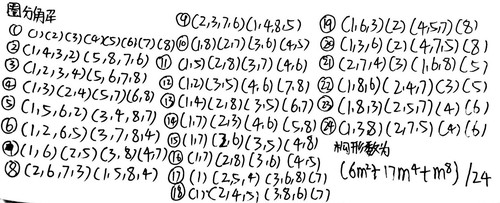 圆分解
① (1)(2)(3)(4)(5)(6)(7)(8)
② (1,4,3,2)(5,8,7,6)
③ (1,2,3,4)(5,6,7,8)
④ (1,3)(2,4)(5,7)(6,8)
⑤ (1,5,6,2)(3,4,8,7)
⑥ (1,2,6,5)(3,7,8,4)
⑦ (1,6)(2,5)(3,8)(4,7)
⑧ (2,6,7,3)(1,5,8,4)
⑨ (2,3,7,6)(1,4,8,5)
⑩ (1,8)(2,7)(3,6)(4,5)
⑪ (1,5)(2,8)(3,7)(4,6)
⑫ (1,2)(3,5)(4,6)(7,8)
⑬ (1,4)(2,8)(3,5)(6,7)
⑭ (1,7)(2,3)(4,6)(5,8)
⑮ (1,7)(2,6)(3,5)(4,8)
⑯ (1,7)(2,8)(3,6)(4,5)
⑰ (1)(2,5,4)(3,6,8)(7)
⑱ (1)(2,4,5)(3,8,6)(7)
⑲ (1,6,3)(2)(4,5,7)(8)
⑳ (1,3,6)(2)(4,7,5)(8)
㉑ (2,7,4)(3)(1,6,8)(5)
㉒ (1,8,6)(2,4,7)(3)(5)
㉓ (1,8,3)(2,5,7)(4)(6)
㉔ (1,3,8)(2,7,5)(4)(6)
构形数为
(6m²+17m⁴+m⁸)/24